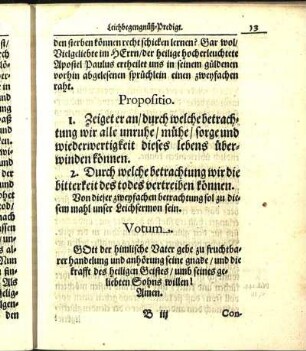 Leichbegengnüß-Predigt. 13
den sterben können recht schicken lernen? Gar wol/
Vielgeliebte im HErrn/der heilige hocherleuchtete
Apostel Paulus ertheilet uns in seinem güldenen
vorhin abgelesenen sprüchlein einen zweyfachen
raht.
Propositio.
1. Zeiget er an/durch welche betrach-
tung wir alle unruhe/mühe/sorge und
wiederwertigkeit dieses lebens über-
winden können.
2. Durch welche betrachtung wir die
bitterkeit des todes vertreiben können.
Von dieser zweyfachen betrachtung sol zu die-
sem mahl unser Leichsermon sein.
Votum.
GOtt der himlische Vater gebe zu fruchtba-
rer handelung und anhörung seine gnade/und die
krafft des heiligen Geistes/umb seines ge-
liebten Sohns willen!
Amen.
B iij Con-